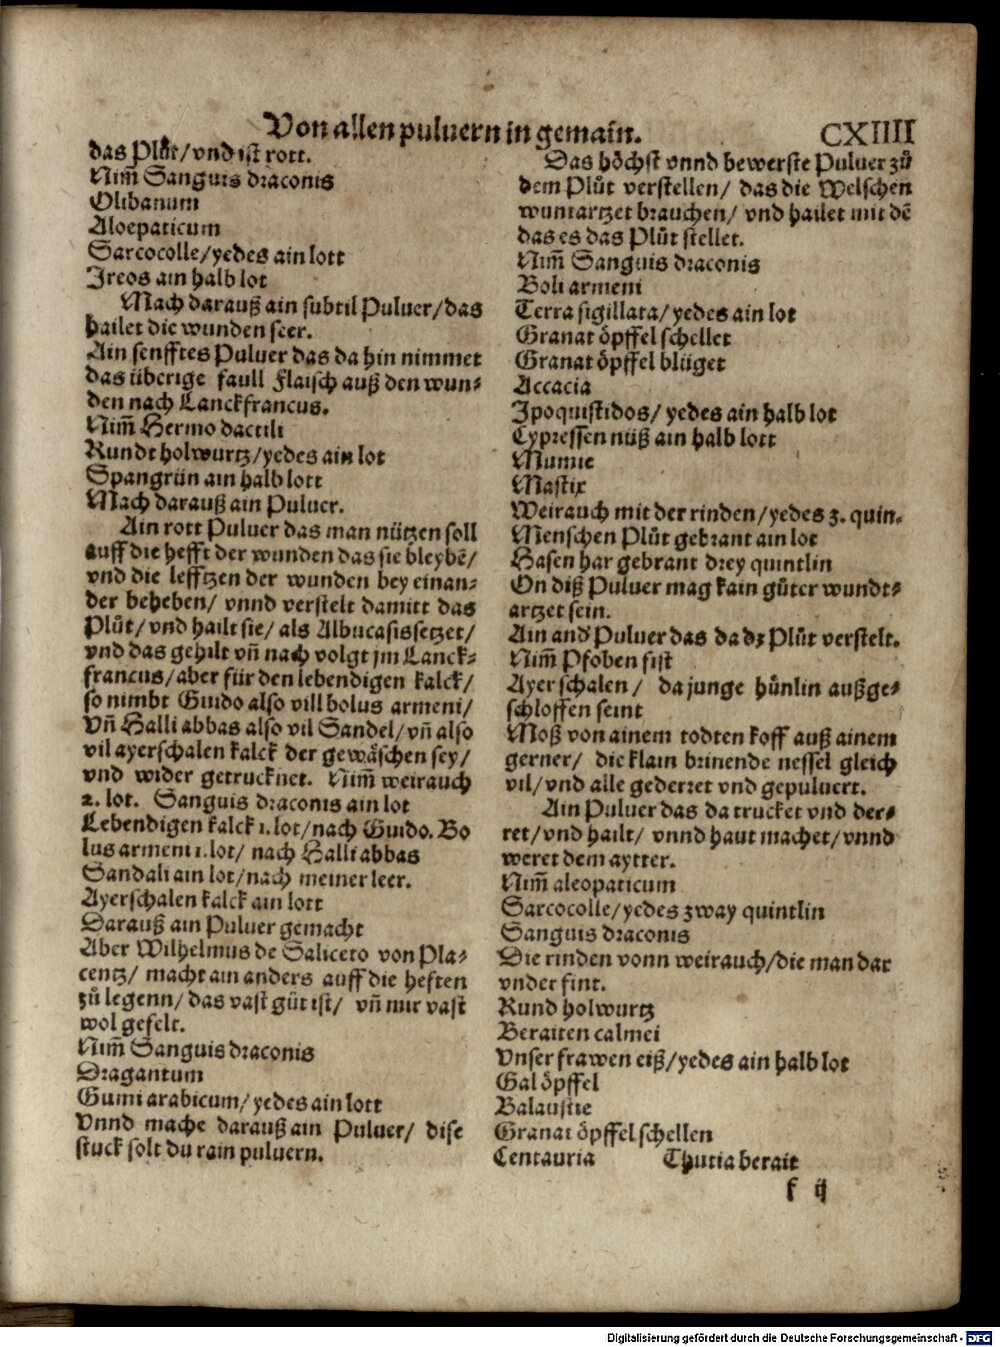 Von allen puluern in gemain. CXIIII
das Plůt/vnd ist rott.
Nim̃ Sanguis draconis
Olibanum
Aloepaticum
Sarcocolle/yedes ain lott
Jreos ain halb lot
Mach darauß ain subtil Puluer/das
hailet die wunden seer.
Ain senfftes Puluer das da hin nimmet
das überige faull Flaisch auß den wun⸗
den nach Lanckfrancus.
Nim̃ Hermo dactili
Rundt holwurtz/yedes ain lot
Spangrün ain halb lott
Mach darauß ain Puluer.
Ain rott Puluer das man nützen soll
auff die hefft der wunden das sie bleybẽ/
vnd die lefftzen der wunden bey einan⸗
der beheben/ vnnd verstelt damitt das
Plůt/vnd hailt sie/als Albucasis setzet/
vnd das gehilt vñ nach volgt jm Lanck⸗
francus/aber für den lebendigen kalck/
so nimbt Guido also vill bolus armeni/
Vñ Halli abbas also vil Sandel/vñ also
vil ayerschalen kalck der gewäschen sey/
vnd wider getrucknet. Nim̃ weirauch
2. lot. Sanguis draconis ain lot
Lebendigen kalck 1. lot/nach Guido. Bo
lus armeni 1. lot/ nach Halli abbas
Sandali ain lot/nach meiner leer.
Ayerschalen kalck ain lott
Darauß ain Puluer gemacht
Aber Wilhelmus de Saliceto von Pla⸗
centz/ macht ain anders auff die heften
zů legenn/das vast gůt ist/ vñ mir vast
wol gefelt.
Nim̃ Sanguis draconis
Dragantum
Gumi arabicum/yedes ain lott
Vnnd mache darauß ain Puluer/ dise
stuck solt du rain puluern.
Das höchst vnnd bewerste Puluer zů
dem Plůt verstellen/ das die Welschen
wuntartzet brauchen/ vnd hailet mit dẽ
das es das Plůt stellet.
Nim̃ Sanguis draconis
Boli armeni
Terra sigillata/yedes ain lot
Granat öpffel schellet
Granat öpffel blüget
Accacia
Jpoquistidos/ yedes ain halb lot
Cypressen nüß ain halb lott
Mumie
Mastix
Weirauch mit der rinden/yedes 3. quin.
Menschen Plůt gebrant ain lot
Hasen har gebrant drey quintlin
On diß Puluer mag kain gůter wundt⸗
artzet sein.
Ain and Puluer das da dz Plůt verstelt.
Nim̃ Pfoben fist
Ayer schalen/ da junge hůnlin außge⸗
schloffen seint
Moß von ainem todten koff auß ainem
gerner/ die klain brinende nessel gleich
vil/vnd alle gederret vnd gepuluert.
Ain Puluer das da trucket vnd der⸗
ret/vnd hailt/ vnnd haut machet/vnnd
weret dem aytter.
Nim̃ aleopaticum
Sarcocolle/yedes zway quintlin
Sanguis draconis
Die rinden vonn weirauch/die man dar
vnder fint.
Rund holwurtz
Beraiten calmei
Vnser frawen eiß/yedes ain halb lot
Gal öpffel
Balaustie
Granat öpffel schellen
Centauria Thutia berait
f ij
Digitalisierung gefördert durch die Deutsche Forschungsgemeinschaft - DFG